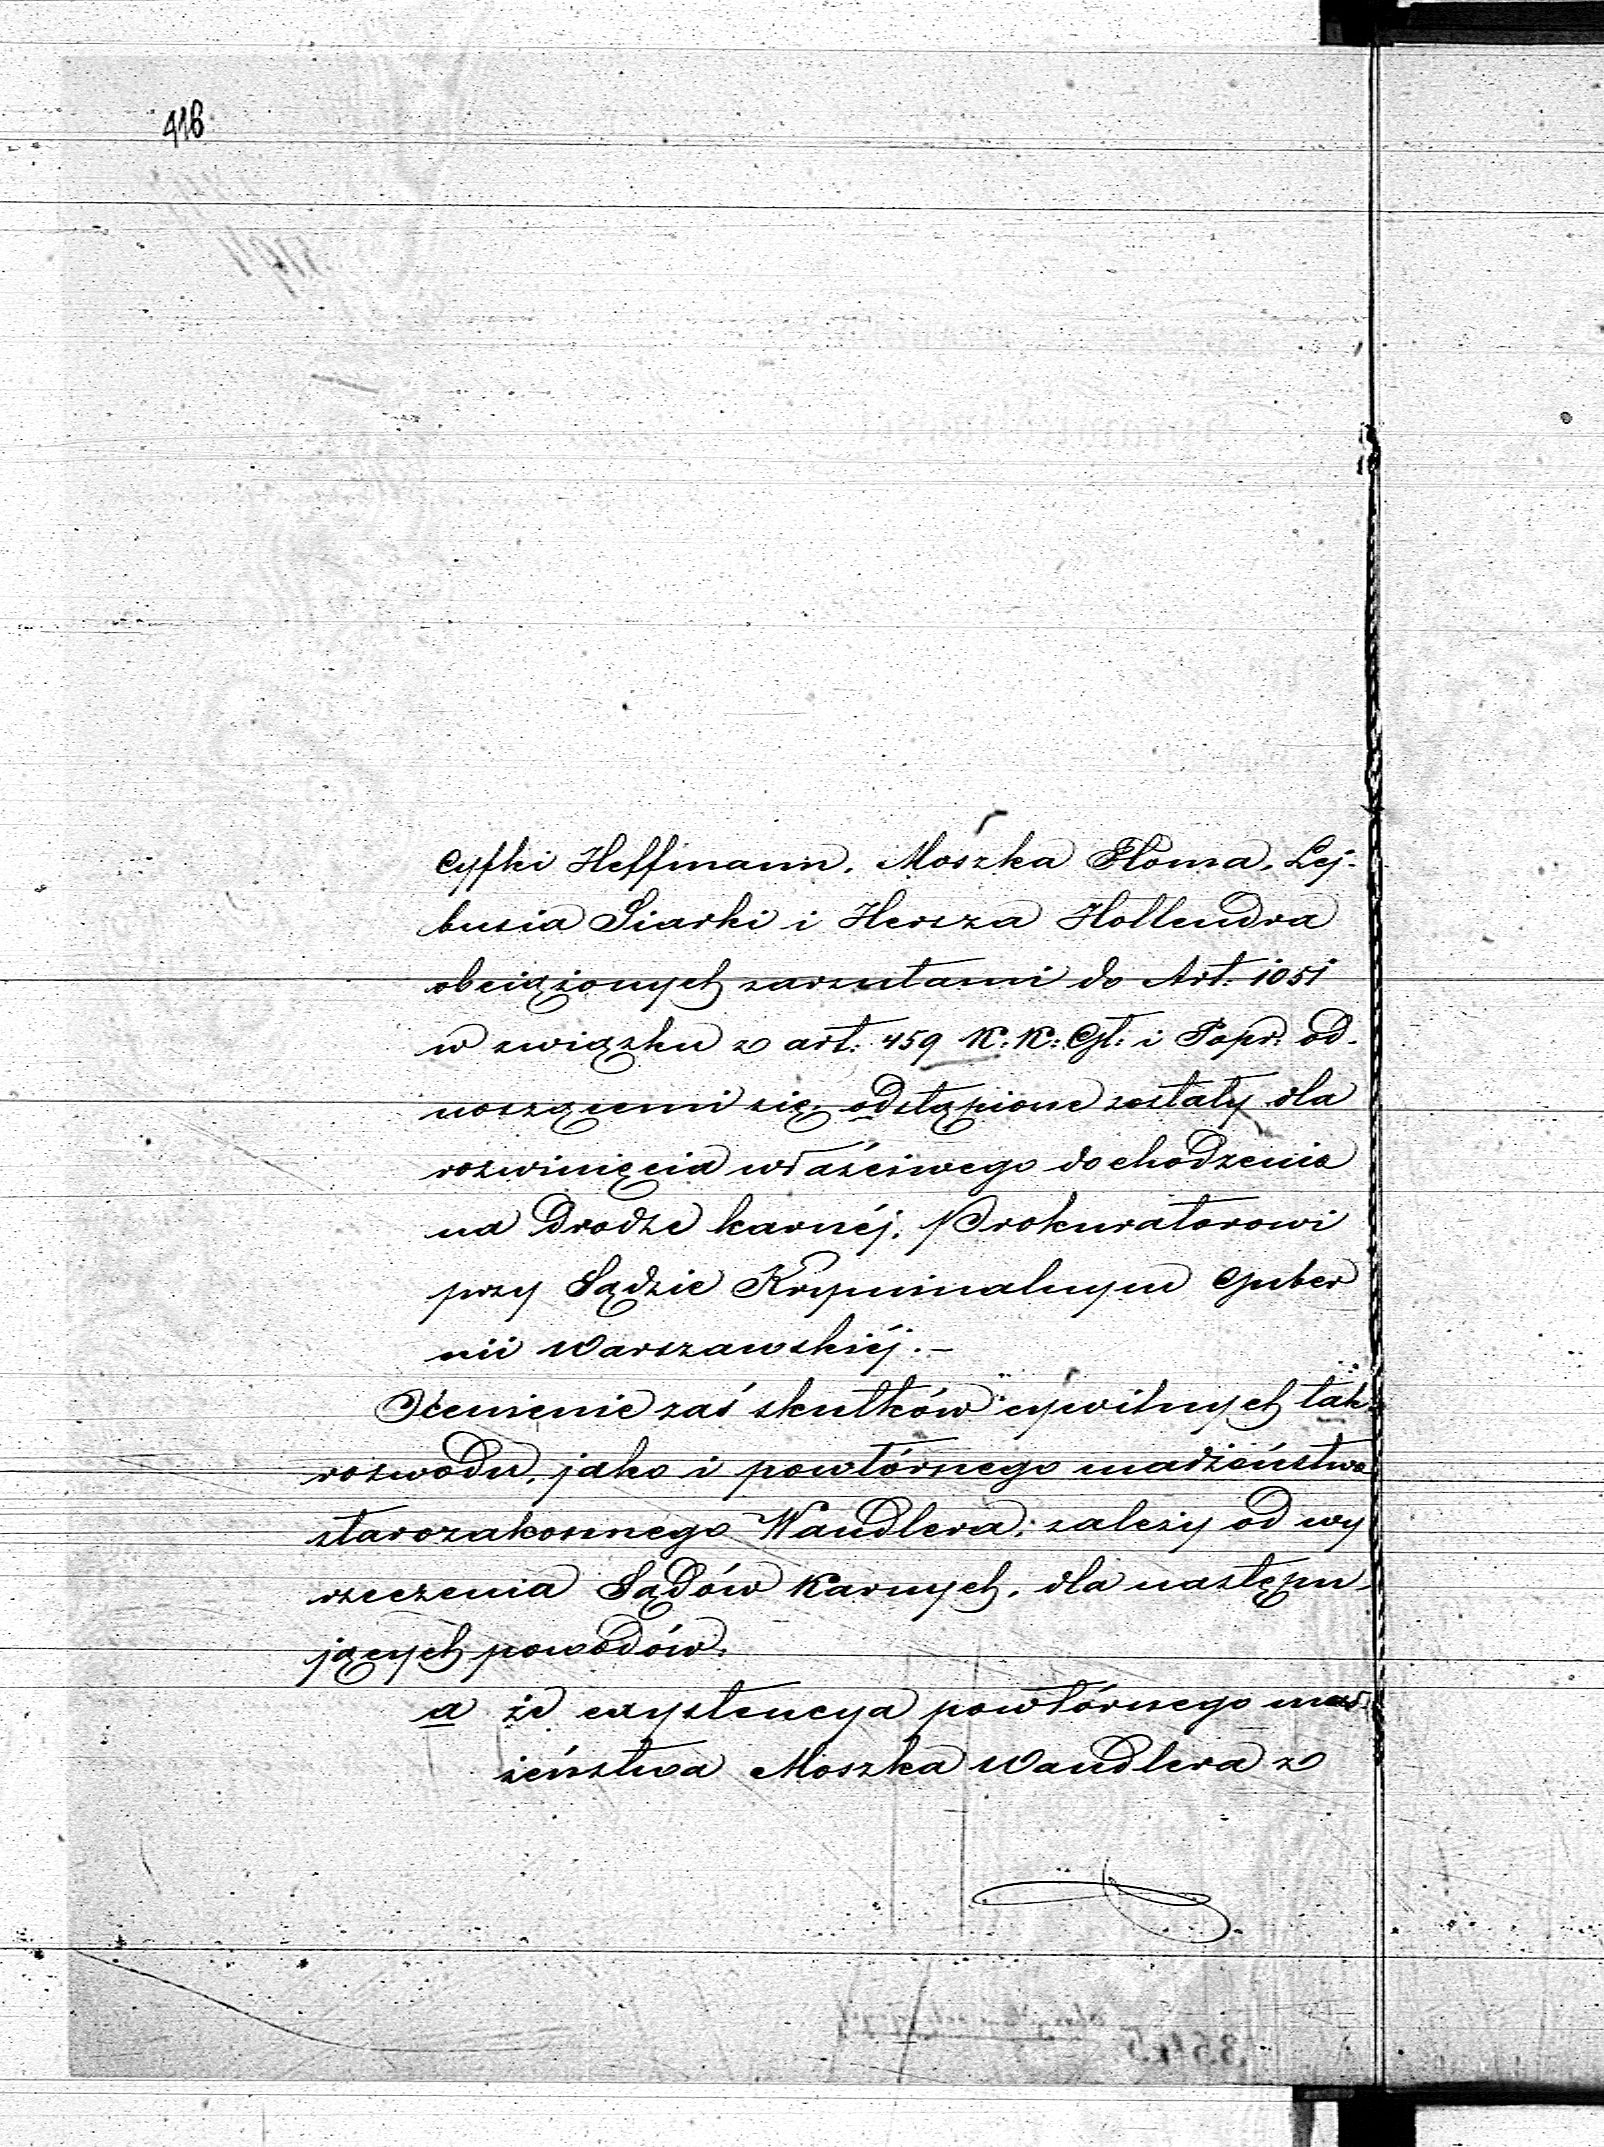 416
Cyfki Heffmann, Moszka Floma, Lej-
busia Siarki i Hersza Hollendra
obciążonych zarzutami do Art: 1051
w związku z art: 459 K: K: Gł: i Popr: od-
noszącemi się, odstąpione zostały dla
rozwinięcia właściwego dochodzenia
na drodze karnéj, Prokuratorowi
przy Sądzie Kryminalnym Guber
nii Warszawskiéj.—
Ocenienie zaś skutków cywilnych tak
rozwodu, jako i powtórnego małżeństwa
starozakonnego Wandlera, zależy od wy
rzeczenia Sądów Karnych, dla następu-
jących powodów.
a że exystencya powtórnego mał-
żeństwa Moszka Wandlera z